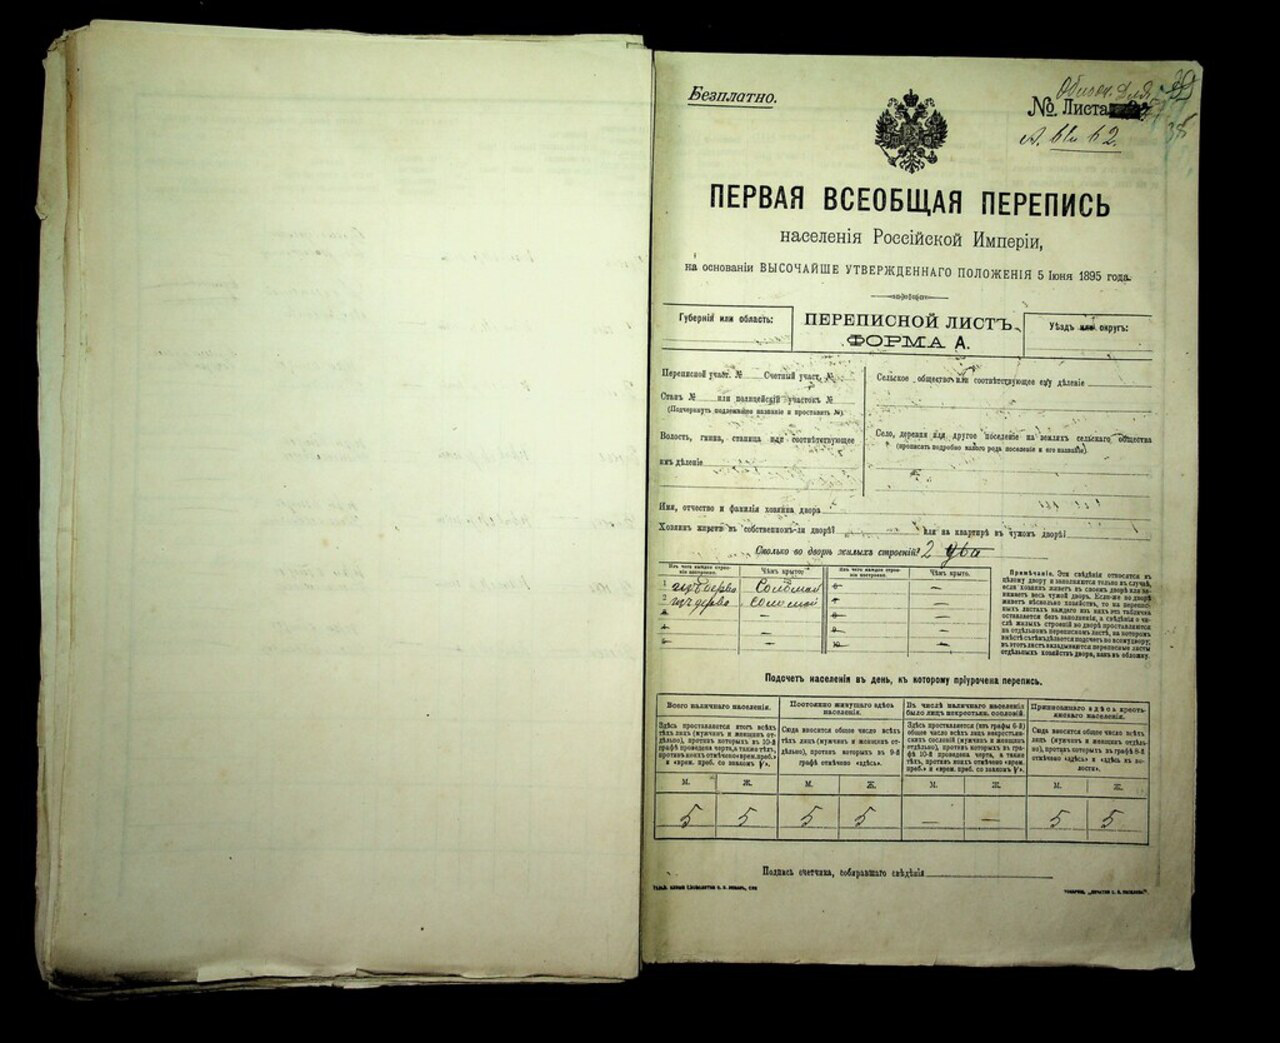 Безплатно.
№ Листа
ПЕРВАЯ ВСЕОБЩАЯ ПЕРЕПИСЬ
населенія Россійской Имперіи,
на основаніи ВЫСОЧАЙШЕ УТВЕРЖДЕННАГО ПОЛОЖЕНІЯ 5 Іюня 1895 года.
Губернія или область:
ПЕРЕПИСНОЙ ЛИСТЪ
ФОРМА А.
Уѣздъ или округъ:
Переписной участ. № Счетный участ. №
Станъ № или полицейскій участокъ №
(Подчеркнуть подлежащее названіе и проставить №).
Волость, гмина, станица или соотвѣтствующее
имъ дѣленіе
Сельское общество или соотвѣтствующее ему дѣленіе
Село, деревня или другое поселеніе на земляхъ сельскаго общества
(прописать подробно какого рода поселеніе и его названіе).
Имя, отчество и фамилія хозяина двора
Хозяинъ живетъ въ собственномъ-ли дворѣ? или на квартирѣ въ чужомъ дворѣ?
Сколько во дворѣ жилыхъ строеній? 2 два
Изъ чего каждое строеніе построено. Чѣмъ крыто. Изъ чего каждое строеніе построено. Чѣмъ крыто.
1 изъ дерева Соломой
2 изъ дерева соломой
Примѣчаніе. Эти свѣдѣнія относятся къ
цѣлому двору и заполняются только въ случаѣ,
если хозяинъ живетъ въ своемъ дворѣ или занимаетъ весь чужой дворъ. Если-же во дворѣ
живетъ нѣсколько хозяйствъ, то на переписныхъ листахъ каждаго изъ нихъ эта табличка
оставляется безъ заполненія, а свѣдѣнія о числѣ жилыхъ строеній во дворѣ проставляются
на отдѣльномъ переписномъ листѣ, на которомъ
вмѣстѣ съ тѣмъ дѣлается подсчетъ по всему двору;
въ этотъ листъ вкладываются переписные листы
отдѣльныхъ хозяйствъ двора, какъ въ обложку.
Подсчетъ населенія въ день, къ которому пріурочена перепись.
Всего наличнаго населенія.
Здѣсь проставляется итогъ всѣхъ
тѣхъ лицъ (мужчинъ и женщинъ отдѣльно), противъ которыхъ въ 10-й
графѣ проведена черта, а также тѣхъ,
противъ коихъ отмѣчено «врем. преб.»
и «врем. преб. со знакомъ V».
Постоянно живущаго здѣсь
населенія.
Сюда вносится общее число всѣхъ
тѣхъ лицъ (мужчинъ и женщинъ отдѣльно), противъ которыхъ въ 9-й
графѣ отмѣчено «здѣсь».
Въ числѣ наличнаго населенія
было лицъ некрестьян. сословій.
Здѣсь проставляется (изъ графы 6-й)
общее число всѣхъ лицъ некрестьянскихъ сословій (мужчинъ и женщинъ
отдѣльно), противъ которыхъ въ графѣ 10-й проведена черта, а также
тѣхъ, противъ коихъ отмѣчено «врем.
преб.» и «врем. преб. со знакомъ V».
Приписаннаго здѣсь крестьянскаго населенія.
Сюда вносится общее число всѣхъ
лицъ (мужчинъ и женщинъ отдѣльно), противъ которыхъ въ графѣ 8-й
отмѣчено «здѣсь» и «здѣсь въ волости».
М. Ж. М. Ж. М. Ж. М. Ж.
5 5 5 5 — — 5 5
Подпись счетчика, собиравшаго свѣдѣнія